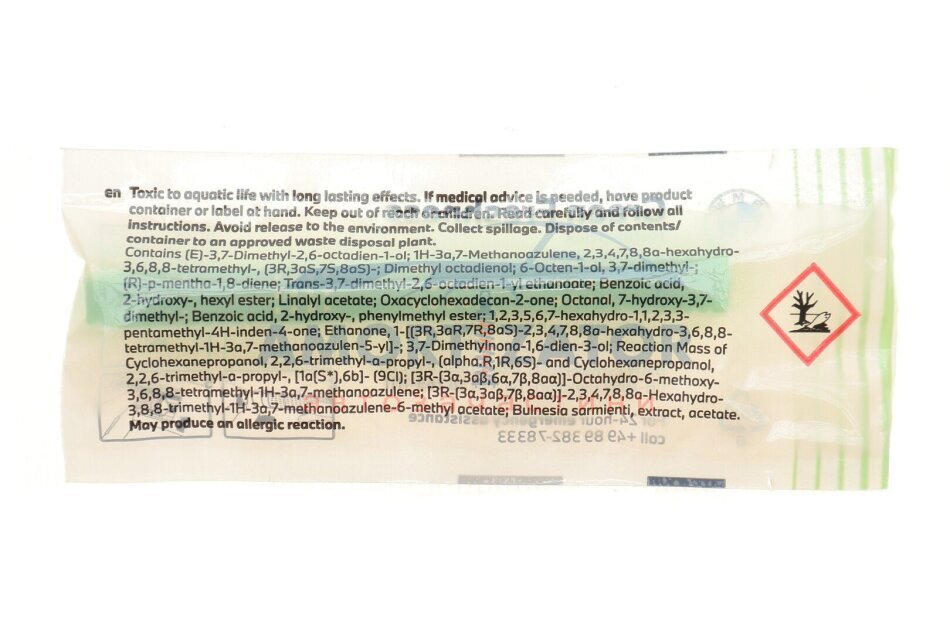 en Toxic to aquatic life with long lasting effects. If medical advice is needed, have product
container or label at hand. Keep out of reach of children. Read carefully and follow all
instructions. Avoid release to the environment. Collect spillage. Dispose of contents/
container to an approved waste disposal plant.
Contains (E)-3,7-Dimethyl-2,6-octadien-1-ol; 1H-3a,7-Methanoazulene, 2,3,4,7,8,8a-hexahydro-
3,6,8,8-tetramethyl-, (3R,3aS,7S,8aS)-; Dimethyl octadienol; 6-Octen-1-ol, 3,7-dimethyl-;
(R)-p-mentha-1,8-diene; Trans-3,7-dimethyl-2,6-octadien-1-yl ethanoate; Benzoic acid,
2-hydroxy-, hexyl ester; Linalyl acetate; Oxacyclohexadecan-2-one; Octanal, 7-hydroxy-3,7-
dimethyl-; Benzoic acid, 2-hydroxy-, phenylmethyl ester; 1,2,3,5,6,7-hexahydro-1,1,2,3,3-
pentamethyl-4H-inden-4-one; Ethanone, 1-[(3R,3aR,7R,8aS)-2,3,4,7,8,8a-hexahydro-3,6,8,8-
tetramethyl-1H-3a,7-methanoazulen-5-yl]-; 3,7-Dimethylnona-1,6-dien-3-ol; Reaction Mass of
Cyclohexanepropanol, 2,2,6-trimethyl-a-propyl-, (alpha.R,1R,6S)- and Cyclohexanepropanol,
2,2,6-trimethyl-a-propyl-, [1a(S*),6b]- (9CI); [3R-(3α,3aß,6α,7β,8aα)]-Octahydro-6-methoxy-
3,6,8,8-tetramethyl-1H-3a,7-methanoazulene; [3R-(3α,3aß,7β,8aα)]-2,3,4,7,8,8a-Hexahydro-
3,8,8-trimethyl-1H-3a,7-methanoazulene-6-methyl acetate; Bulnesia sarmienti, extract, acetate.
May produce an allergic reaction.
For 24-hour emergency assistance
call +49 89 382-78333